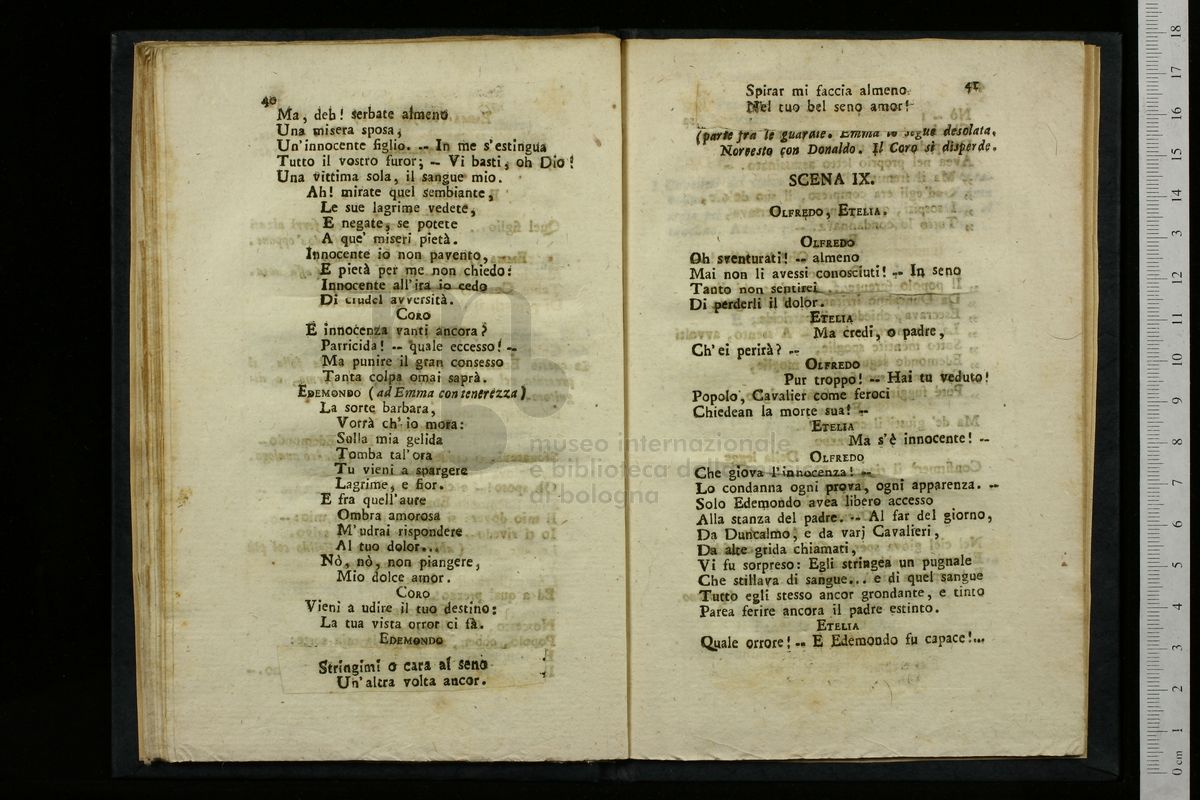 40
Ma, deh! serbate almeno
Una misera sposa,
Un'innocente figlio. -- In me s'estingua
Tutto il vostro furor; -- Vi basti, oh Dio!
Una vittima sola, il sangue mio.
Ah! mirate quel sembiante,
Le sue lagrime vedete,
E negate, se potete
A que' miseri pietà.
Innocente io non pavento,
E pietà per me non chiedo:
Innocente all'ira io cedo
Di crudel avversità.
CORO
E innocenza vanti ancora?
Parricida! -- quale eccesso! --
Ma punire il gran consesso
Tanta colpa omai saprà.
EDEMONDO (ad Emma con tenerezza)
La sorte barbara,
Vorrà ch' io mora:
Sulla mia gelida
Tomba tal'ora
Tu vieni a spargere
Lagrime, e fior.
E fra quell'aure
Ombra amorosa
M'udrai rispondere
Al tuo dolor...
Nò, nò, non piangere,
Mio dolce amor.
CORO
Vieni a udire il tuo destino:
La tua vista orror ci fà.
EDEMONDO
Stringimi o cara al seno
Un'altra volta ancor.
41
Spirar mi faccia almeno
Nel tuo bel seno amor!
(parte fra le guardie. Emma lo segue desolata.
Norcesto con Donaldo. Il Coro si disperde.
SCENA IX.
OLFREDO, ETELIA.
OLFREDO
Oh sventurati! -- almeno
Mai non li avessi conosciuti! -- In seno
Tanto non sentirei
Di perderli il dolor.
ETELIA
Ma credi, o padre,
Ch'ei perirà? --
OLFREDO
Pur troppo! -- Hai tu veduto!
Popolo, Cavalier come feroci
Chiedean la morte sua! --
ETELIA
Ma s'è innocente! --
OLFREDO
Che giova l'innocenza! --
Lo condanna ogni prova, ogni apparenza. --
Solo Edemondo avea libero accesso
Alla stanza del padre. -- Al far del giorno,
Da Duncalmo, e da varj Cavalieri,
Da alte grida chiamati,
Vi fu sorpreso: Egli stringea un pugnale
Che stillava di sangue... e di quel sangue
Tutto egli stesso ancor grondante, e tinto
Parea ferire ancora il padre estinto.
ETELIA
Quale orrore! -- E Edemondo fu capace!...
museo internazionale
e biblioteca della
di bologna
0 cm 1 2 3 4 5 6 7 8 9 10 11 12 13 14 15 16 17 18